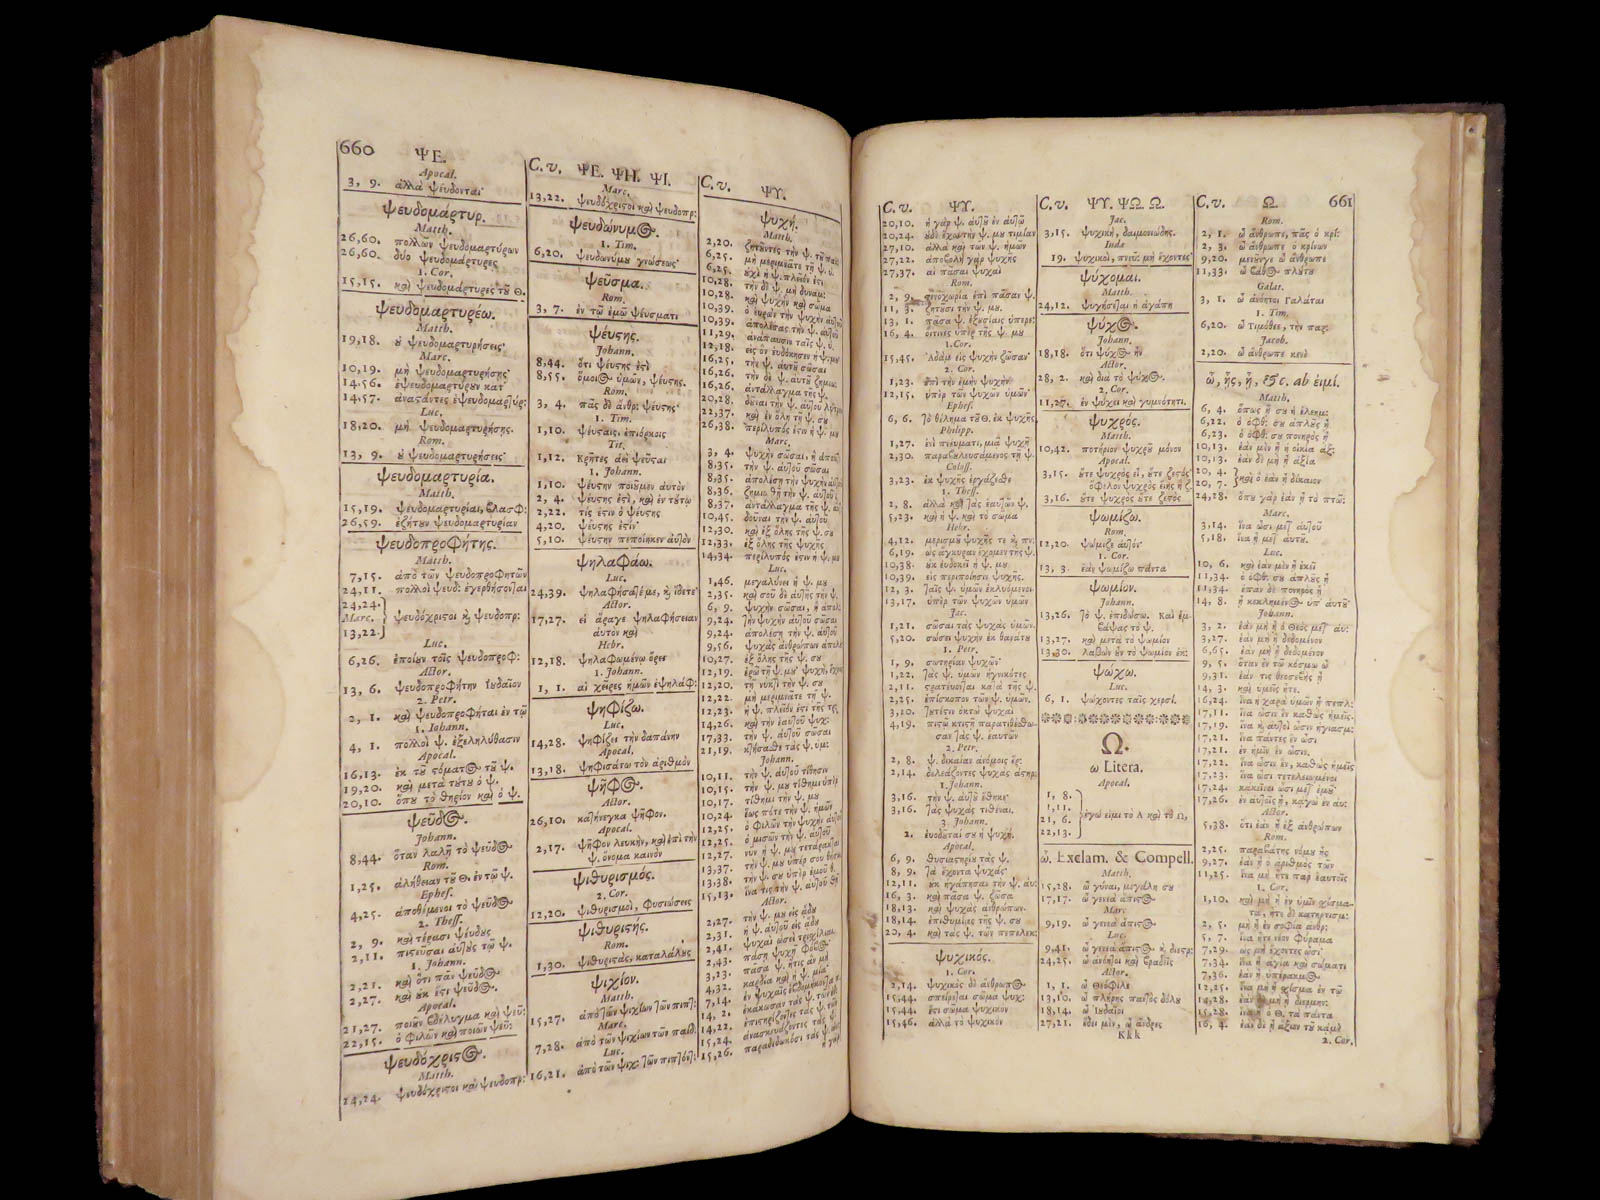 660 ΨΕ.
Apocal.
3, 9. ἀλλὰ ψεύδονται·
ψευδομάρτυρ.
Matth.
26,60. πολλῶν ψευδομαρτύρων
26,60. δύο ψευδομάρτυρες
1. Cor.
15,15. καὶ ψευδομάρτυρες τȣ͂ Θ.
ψευδομαρτυρέω.
Matth.
19,18. ȣ ψευδομαρτυρήσεις·
Marc.
10,19. μὴ ψευδομαρτυρήσῃς·
14,56. ἐψευδομαρτύρȣν κατ'
14,57.
Luc.
18,20. μὴ ψευδομαρτυρήσῃς.
Rom.
13, 9. ȣ ψευδομαρτυρήσεις·
ψευδομαρτυρία.
Matth.
15,19. ψευδομαρτυρίαι,
26,59. ἐζήτȣν ψευδομαρτυρίαν
ψευδοπροφήτης.
Matth.
7,15. ἀπὸ τῶν ψευδοπροφητῶν
24,11. πολλοὶ ψευδ: ἐγερθήσονται
24,24.
Marc.
13,22.
ψευδόχριστοι κ̀ ψευδοπρ:
Luc.
6,26. ἐποίȣν τοῖς ψευδοπροφ:
Actor.
13, 6. ψευδοπροφήτην Ἰȣδαῖον
2. Petr.
2, 1. καὶ ψευδοπροφῆται ἐν τῷ
1. Iohann.
4, 1. πολλοὶ ψ. ἐξεληλύθασιν
Apocal.
16,13. ἐκ τȣ͂ στόματος τȣ͂ ψ.
19,20. καὶ μετὰ τȣ́τȣ ὁ ψ.
20,10. ὅπȣ τὸ θηρίον καὶ ὁ ψ.
ψεῦδος.
Johann.
8,44. ὅταν λαλῇ τὸ ψεῦδος
Rom.
1,25. ἀλήθειαν τȣ͂ Θ. ἐν τῷ ψ.
Ephes.
4,25. ἀποθέμενοι τὸ ψεῦδος
2. Thess.
2, 9. καὶ τέρασι ψεύδȣς
2,11. πιστεῦσαι αὐτȣ̀ς τῷ ψ.
1. Johann.
2,21. καὶ ὅτι πᾶν ψεῦδος
2,27. καὶ ȣκ ἔστι ψεῦδος.
Apocal.
21,27. ποιȣ͂ν βδέλυγμα καὶ ψεῦ:
22,15. ὁ φιλῶν καὶ ποιῶν ψεῦ:
ψευδόχριστος.
Matth.
24,24. ψευδόχριστοι καὶ ψευδοπρ:
C. v. ΨΕ. ΨΗ. ΨΙ.
Marc.
13,22. ψευδόχριστοι καὶ ψευδοπρ:
ψευδώνυμος.
1. Tim.
6,20. ψευδωνύμȣ γνώσεως·
ψεῦσμα.
Rom.
3, 7. ἐν τῷ ἐμῷ ψεύσματι
ψεύστης.
Johann.
8,44. ὅτι ψεύστης ἐστὶ
8,55. ὅμοιος ὑμῶν, ψεύστης.
Rom.
3, 4. πᾶς δὲ ἄνθρ: ψεύστης·
1. Tim.
1,10. ψεύσταις, ἐπιόρκοις
Tit.
1,12. Κρῆτες ἀεὶ ψεῦσται
1. Johann.
1,10. ψεύστην ποιȣ͂μεν αὐτὸν
2, 4. ψεύστης ἐστὶ, καὶ ἐν τȣ́τῳ
2,22. τίς ἐστιν ὁ ψεύστης
4,20. ψεύστης ἐστίν·
5,10. ψεύστην πεποίηκεν αὐτὸν
ψηλαφάω.
Luc.
24,39. ψηλαφήσατέ με, κ̀ ἴδετε·
Actor.
17,27. εἰ ἄραγε ψηλαφήσειαν
αὐτὸν καὶ
Hebr.
12,18. ψηλαφωμένῳ ὄρει
1. Johann.
1, 1. αἱ χεῖρες ἡμῶν ἐψηλάφ:
ψηφίζω.
Luc.
14,28. ψηφίζει τὴν δαπάνην
Apocal.
13,18. ψηφισάτω τὸν ἀριθμὸν
ψῆφος.
Actor.
26,10. κατήνεγκα ψῆφον.
Apocal.
2,17. ψῆφον λευκὴν, καὶ ἐπὶ τὴν
ψ. ὄνομα καινὸν
ψιθυρισμός.
2. Cor.
12,20. ψιθυρισμοὶ, φυσιώσεις
ψιθυριστής.
Rom.
1,30. ψιθυριστὰς, καταλάλȣς
ψιχίον.
Matth.
15,27. ἀπὸ τῶν ψιχίων τῶν πιπτ:
Marc.
7,28. ἀπὸ τῶν ψιχίων τῶν παιδ:
Luc.
16,21. ἀπὸ τῶν ψιχ: τῶν πιπτόντ:
C. v. ΨΥ.
ψυχή.
Matth.
2,20. ζητȣ͂ντες τὴν ψ. τȣ͂ παιδ:
6,25. μὴ μεριμνᾶτε τῇ ψ. ὑ.
6,25. ȣχὶ ἡ ψ. πλεῖόν ἐστι
10,28. τὴν δὲ ψ. μὴ δυναμ:
10,28. καὶ ψυχὴν καὶ σῶμα
10,39. ὁ εὑρὼν τὴν ψυχὴν αὐτȣ͂
10,39. ἀπολέσας τὴν ψ. αὐτȣ͂
11,29. ἀνάπαυσιν ταῖς ψ. ὑ.
12,18. εἰς ὃν εὐδόκησεν ἡ ψ. μȣ
16,25. τὴν ψ. αὐτȣ͂ σῶσαι
16,26. τὴν δὲ ψ. αὐτȣ͂ ζημιω:
16,26. ἀντάλλαγμα τῆς ψ.
20,28. δȣ͂ναι τὴν ψ. αὐτȣ͂ λύτρ
22,37. καὶ ἐν ὅλῃ τῇ ψ. σȣ
26,38. περίλυπός ἐστιν ἡ ψ. μȣ
Marc.
3, 4. ψυχὴν σῶσαι, ἢ ἀποκτ
8,35. τὴν ψ. αὐτȣ͂ σῶσαι
8,35. ἀπολέσῃ τὴν ψυχὴν αὐτȣ͂
8,36. ζημιωθῇ τὴν ψ. αὐτȣ͂
8,37. ἀντάλλαγμα τῆς ψ. αὐ
10,45. δȣ͂ναι τὴν ψ. αὐτȣ͂
12,30. καὶ ἐξ ὅλης τῆς ψ. σȣ
12,33. ἐξ ὅλης τῆς ψυχῆς
14,34. περίλυπός ἐστιν ἡ ψ. μȣ
Luc.
1,46. μεγαλύνει ἡ ψ. μȣ
2,35. καὶ σοῦ δὲ αὐτῆς τὴν ψ.
6, 9. ψυχὴν σῶσαι, ἢ ἀπολ:
9,24. τὴν ψυχὴν αὐτȣ͂ σῶσαι
9,24. ἀπολέσῃ τὴν ψ. αὐτȣ͂
9,56. ψυχὰς ἀνθρώπων ἀπολέ
10,27. ἐξ ὅλης τῆς ψ. σȣ
12,19. ἐρῶ τῇ ψ. μȣ· ψυχὴ, ἔχεις
12,20. τῇ νυκτὶ τὴν ψ. σȣ
12,22. μὴ μεριμνᾶτε τῇ ψ.
12,23. ἡ ψ. πλεῖόν ἐστι τῆς τρ
14,26. καὶ τὴν ἑαυτȣ͂ ψυχ:
17,33. τὴν ψ. αὐτȣ͂ σῶσαι
21,19. κτήσασθε τὰς ψ. ὑμ:
Johann.
10,11. τὴν ψ. αὐτȣ͂ τίθησιν
10,15. τὴν ψ. μȣ τίθημι ὑπὲρ
10,17. τίθημι τὴν ψ. μȣ
10,24. ἕως πότε τὴν ψ. ἡμῶν
12,25. ὁ φιλῶν τὴν ψυχὴν αὐτȣ͂
12,25. ὁ μισῶν τὴν ψ. αὐτȣ͂
12,27. νῦν ἡ ψ. μȣ τετάρακται
13,37. τὴν ψ. μȣ ὑπὲρ σοῦ θήσω
13,38. τὴν ψ. σȣ ὑπὲρ ἐμοῦ θ.
15,13. ἵνα τις τὴν ψ. αὐτȣ͂ θῇ
Actor.
2,27. τὴν ψ. μȣ εἰς ᾅδȣ
2,31. ἡ ψ. αὐτȣ͂ εἰς ᾅδȣ
2,41. ψυχαὶ ὡσεὶ τρισχίλιαι.
2,43. πάσῃ ψυχῇ φόβος·
3,23. πᾶσα ψ. ἥτις ἂν μὴ
4,32. καρδία καὶ ἡ ψ. μία·
7,14. ἐν ψυχαῖς ἑβδομήκοντα π
14, 2. ἐκάκωσαν τὰς ψ. τῶν ἐθ
14,22. ἐπιστηρίζοντες τὰς ψ.
15,24. ἀνασκευάζοντες τὰς ψ.
15,26. παραδεδωκόσι τὰς ψ. α
ἡ γὰρ
C. v. ΨΥ.
20,10. ἡ γὰρ ψ. αὐτȣ͂ ἐν αὐτῷ
20,24. ȣδὲ ἔχω τὴν ψ. μȣ τιμίαν
27,10. ἀλλὰ καὶ τῶν ψ. ἡμῶν
27,22. ἀποβολὴ γὰρ ψυχῆς
27,37. αἱ πᾶσαι ψυχαὶ
Rom.
2, 9. στενοχωρία ἐπὶ πᾶσαν ψ.
11, 3. ζητȣ͂σι τὴν ψ. μȣ.
13, 1. πᾶσα ψ. ἐξȣσίαις ὑπερε:
16, 4. οἵτινες ὑπὲρ τῆς ψ. μȣ
1. Cor.
15,45. Ἀδὰμ εἰς ψυχὴν ζῶσαν·
2. Cor.
1,23. ἐπὶ τὴν ἐμὴν ψυχὴν
12,15. ὑπὲρ τῶν ψυχῶν ὑμῶν·
Ephes.
6, 6. τὸ θέλημα τȣ͂ Θ. ἐκ ψυχῆς,
Philipp.
1,27. ἑνὶ πνεύματι, μιᾷ ψυχῇ
2,30. παραβȣλευσάμενος τῇ ψ.
Coloss.
3,23. ἐκ ψυχῆς ἐργάζεσθε
1. Thess.
2, 8. ἀλλὰ καὶ τὰς ἑαυτῶν ψ.
5,23. καὶ ἡ ψ. καὶ τὸ σῶμα
Hebr.
4,12. μερισμȣ͂ ψυχῆς τε κ̀ πν:
6,19. ὡς ἄγκυραν ἔχομεν τῆς ψ.
10,38. ȣκ εὐδοκεῖ ἡ ψ. μȣ
10,39. εἰς περιποίησιν ψυχῆς.
12, 3. ταῖς ψ. ὑμῶν ἐκλυόμενοι.
13,17. ὑπὲρ τῶν ψυχῶν ὑμῶν
Jac.
1,21. σῶσαι τὰς ψυχὰς ὑμῶν.
5,20. σώσει ψυχὴν ἐκ θανάτȣ
1. Petr.
1, 9. σωτηρίαν ψυχῶν·
1,22. τὰς ψ. ὑμῶν ἡγνικότες
2,11. στρατεύονται κατὰ τῆς ψ.
2,25. ἐπίσκοπον τῶν ψ. ὑμῶν.
3,20. τȣτέστιν ὀκτὼ ψυχαὶ
4,19. πιστῷ κτίστῃ παρατιθέσθω-
σαν τὰς ψ. ἑαυτῶν
2. Petr.
2, 8. ψ. δικαίαν ἀνόμοις ἔρ:
2,14. δελεάζοντες ψυχὰς ἀστηρ:
1. Johann.
3,16. τὴν ψ. αὐτȣ͂ ἔθηκε·
3,16. τὰς ψυχὰς τιθέναι.
3. Johann.
2. εὐοδοῦταί σȣ ἡ ψυχή.
Apocal.
6, 9. θυσιαστηρίȣ τὰς ψ.
8, 9. τὰ ἔχοντα ψυχὰς·
12,11. ȣκ ἠγάπησαν τὴν ψ. αὐ:
16, 3. καὶ πᾶσα ψ. ζῶσα
18,13. καὶ ψυχὰς ἀνθρώπων.
18,14. ἐπιθυμίας τῆς ψ. σȣ
20, 4. καὶ τὰς ψ. τῶν πεπελεκ:
ψυχικός.
1. Cor.
2,14. ψυχικὸς δὲ ἄνθρωπος
15,44. σπείρεται σῶμα ψυχ:
15,44. ἔστι σῶμα ψυχικὸν
15,46. ἀλλὰ τὸ ψυχικὸν
C. v. ΨΥ. ΨΩ. Ω.
Jac.
3,15. ψυχικὴ, δαιμονιώδης.
Judæ
19. ψυχικοὶ, πνεῦμ: μὴ ἔχοντες·
ψύχομαι.
Matth.
24,12. ψυγήσεται ἡ ἀγάπη
ψύχος.
Johann.
18,18. ὅτι ψύχος ἦν
Actor.
28, 2. καὶ διὰ τὸ ψῦχος.
2. Cor.
11,27. ἐν ψύχει καὶ γυμνότητι.
ψυχρός.
Matth.
10,42. ποτήριον ψυχρȣ͂ μόνον
Apocal.
3,15. ȣ́τε ψυχρὸς εἶ, ȣ́τε ζεστός·
ὄφελον ψυχρὸς εἴης ἢ ζ.
3,16. ȣ́τε ψυχρὸς ȣ́τε ζεστὸς
ψωμίζω.
Rom.
12,20. ψώμιζε αὐτόν·
1. Cor.
13, 3. ἐὰν ψωμίζω πάντα
ψωμίον.
Johann.
13,26. τὸ ψ. ἐπιδώσω. Καὶ ἐμ-
βάψας τὸ ψ.
13,27. καὶ μετὰ τὸ ψωμίον
13,30. λαβὼν ȣ͂ν τὸ ψωμίον ἐκ:
ψώχω.
Luc.
6, 1. ψώχοντες ταῖς χερσί.
Ω.
ω Litera.
Apocal.
1, 8.
1,11.
21, 6.
22,13.
ἐγώ εἰμι τὸ Α καὶ τὸ Ω,
ὦ, Exclam. & Compell.
Matth.
15,28. ὦ γύναι, μεγάλη σȣ
17,17. ὦ γενεὰ ἄπιστος
Marc
9,19. ὦ γενεὰ ἄπιστος
Luc.
9,41. ὦ γενεὰ ἄπιστος κ̀ διεστρ:
24,25. ὦ ἀνόητοι καὶ βραδεῖς
Actor.
1, 1. ὦ Θεόφιλε
13,10. ὦ πλήρης παντὸς δόλȣ
18,14. ὦ Ἰȣδαῖοι
27,21. ἔδει μὲν, ὦ ἄνδρες
Kkk
C. v. Ω. 661
Rom.
2, 1. ὦ ἄνθρωπε, πᾶς ὁ κρί:
2, 3. ὦ ἄνθρωπε ὁ κρίνων
9,20. μενȣ͂νγε ὦ ἄνθρωπε
11,33. ὦ βάθος πλȣ́τȣ
Galat.
3, 1. ὦ ἀνόητοι Γαλάται
1. Tim.
6,20. ὦ Τιμόθεε, τὴν παρ:
Jacob.
2,20. ὦ ἄνθρωπε κενὲ
ὦ, ᾖς, ᾖ, &c. ab εἰμί.
Matth.
6, 4. ὅπως ᾖ σȣ ἡ ἐλεημ:
6,22. ὁ ὀφθ: σȣ ἁπλȣ͂ς ᾖ
6,23. ὁ ὀφθ: σȣ πονηρὸς ᾖ
10,13. ἐὰν μὲν ᾖ ἡ οἰκία ἀξ:
10,13. ἐὰν δὲ μὴ ᾖ ἀξία
20, 4.
20, 7.
καὶ ὃ ἐὰν ᾖ δίκαιον
24,28. ὅπȣ γὰρ ἐὰν ᾖ τὸ πτῶ:
Marc.
3,14. ἵνα ὦσι μετ' αὐτοῦ
5,18. ἵνα ᾖ μετ' αὐτȣ͂.
Luc.
10, 6. καὶ ἐὰν μὲν ᾖ ἐκεῖ
11,34. ὁ ὀφθ: σȣ ἁπλȣ͂ς ᾖ
11,34. ἐπὰν δὲ πονηρὸς ᾖ
14, 8. ᾖ κεκλημένος ὑπ' αὐτȣ͂·
Johann.
3, 2. ἐὰν μὴ ᾖ ὁ Θεὸς μετ' αὐ:
3,27. ἐὰν μὴ ᾖ δεδομένον
6,65. ἐὰν μὴ ᾖ δεδομένον
9, 5. ὅταν ἐν τῷ κόσμῳ ὦ
9,31. ἐάν τις θεοσεβὴς ᾖ
14, 3. καὶ ὑμεῖς ἦτε.
16,24. ἵνα ἡ χαρὰ ὑμῶν ᾖ πεπλ:
17,11. ἵνα ὦσιν ἓν καθὼς ἡμεῖς.
17,19. ἵνα κ̀ αὐτοὶ ὦσιν ἡγιασμ:
17,21. ἵνα πάντες ἓν ὦσι
17,21. ἐν ἡμῖν ἓν ὦσιν.
17,22. ἵνα ὦσιν ἓν, καθὼς ἡμεῖς
17,23. ἵνα ὦσι τετελειωμένοι
17,24. κἀκεῖνοι ὦσι μετ' ἐμοῦ
17,26. ἐν αὐτοῖς ᾖ, κἀγὼ ἐν αὐ:
Actor.
5,38. ὅτι ἐὰν ᾖ ἐξ ἀνθρώπων
Rom.
2,25. παραβάτης νόμȣ ᾖς
9,27. ἐὰν ᾖ ὁ ἀριθμὸς τῶν
11,25. ἵνα μὴ ἦτε παρ' ἑαυτοῖς
1. Cor.
1,10. καὶ μὴ ᾖ ἐν ὑμῖν σχίσμα-
τα, ἦτε δὲ κατηρτισμ:
2, 5. μὴ ᾖ ἐν σοφίᾳ ἀνθρ:
5, 7. ἵνα ἦτε νέον φύραμα
7,29. ὡς μὴ ἔχοντες ὦσι·
7,34. ἵνα ᾖ ἁγία καὶ σώματι
7,36. ἐὰν ᾖ ὑπέρακμος
12,25. ἵνα μὴ ᾖ σχίσμα ἐν τῷ
14,28. ἐὰν δὲ μὴ ᾖ διερμην:
15,28. ἵνα ᾖ ὁ Θ. τὰ πάντα
16, 4. ἐὰν δὲ ᾖ ἄξιον τȣ͂ κἀμὲ
2. Cor.